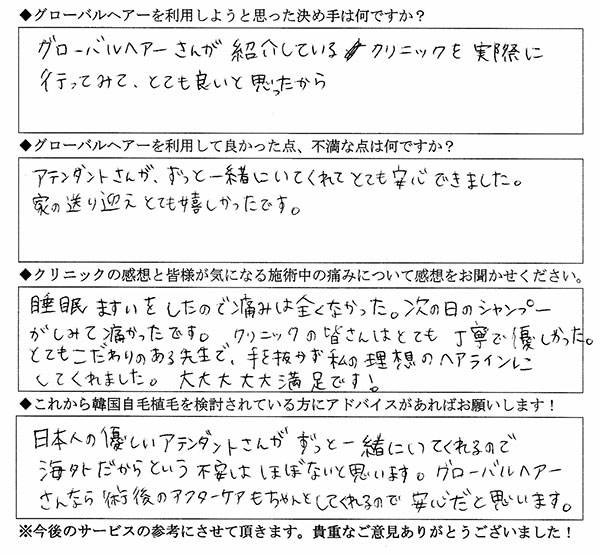 ◆グローバルヘアーを利用しようと思った決め手は何ですか？
グローバルヘアーさんが紹介しているクリニックを実際に
行ってみて、とても良いと思ったから
◆グローバルヘアーを利用して良かった点、不満な点は何ですか？
アテンダントさんが、ずっと一緒にいてくれてとても安心できました。
家の送り迎えとても嬉しかったです。
◆クリニックの感想と皆様が気になる施術中の痛みについて感想をお聞かせください。
睡眠ますいをしたので痛みは全くなかった。次の日のシャンプー
がしみて痛かったです。クリニックの皆さんはとても丁寧で優しかった。
とてもこだわりのある先生で、手を抜かず私の理想のヘアラインに
してくれました。大大大大大満足です！
◆これから韓国自毛植毛を検討されている方にアドバイスがあればお願いします！
日本人の優しいアテンダントさんがずっと一緒にいてくれるので
海外だからという不安はほぼないと思います。グローバルヘアー
さんなら術後のアフターケアもちゃんとしてくれるので安心だと思います。
※今後のサービスの参考にさせて頂きます。貴重なご意見ありがとうございました！